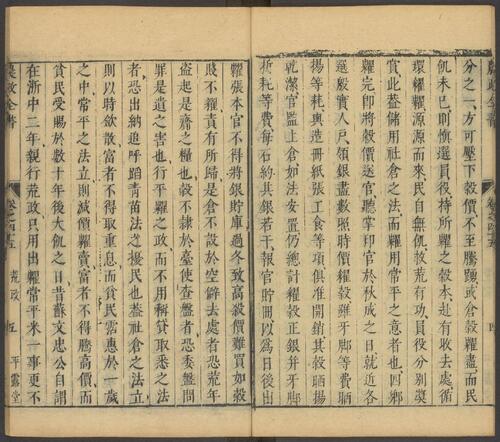 農政全書 卷之四十五 四
分之一方可壓下穀價不至騰踴或倉穀糶盡而民
飢未已則慎選員役持所糶之穀本赴有收去處循
環糴糶源源而來民自無飢救荒有功員役分别奬
賞此蓋儲用社倉之法而糶用常平之意者也因鄉
糶完即將穀價送官聽掌印官於秋成之日就近各
選殷實人戶領銀盡數照時價糴穀雖牙脚等費晒
揚等耗與造冊紙張工食等項俱准開銷其穀晒揚
乾潔官監上倉如法安置仍總計糴穀正銀并牙脚
折耗等費每石約共銀若干報官貯冊以為日後出
糶張本官不得將銀貯庫過冬致高穀價難買如穀
賤不糴責有所歸是倉不設於空僻去處者恐荒年
盗起是齎之糧也穀不隸於臺使查盤者恐委盤問
罪是遺之害也行平糶之政而不用稱貸取息之法
者恐出納追呼蹈青苗法之擾民也蓋社倉之法立
則以時斂散富者不得取重息而貧民霑惠於一歲
之中常平之法立則減價糶賣富者不得騰高價而
貧民受賜於數十年後大飢之日昔蘇文忠公自謂
在浙中二年親行荒政只用出糶常平米一事更不
農政全書 卷之四十五 荒政 五 平露堂